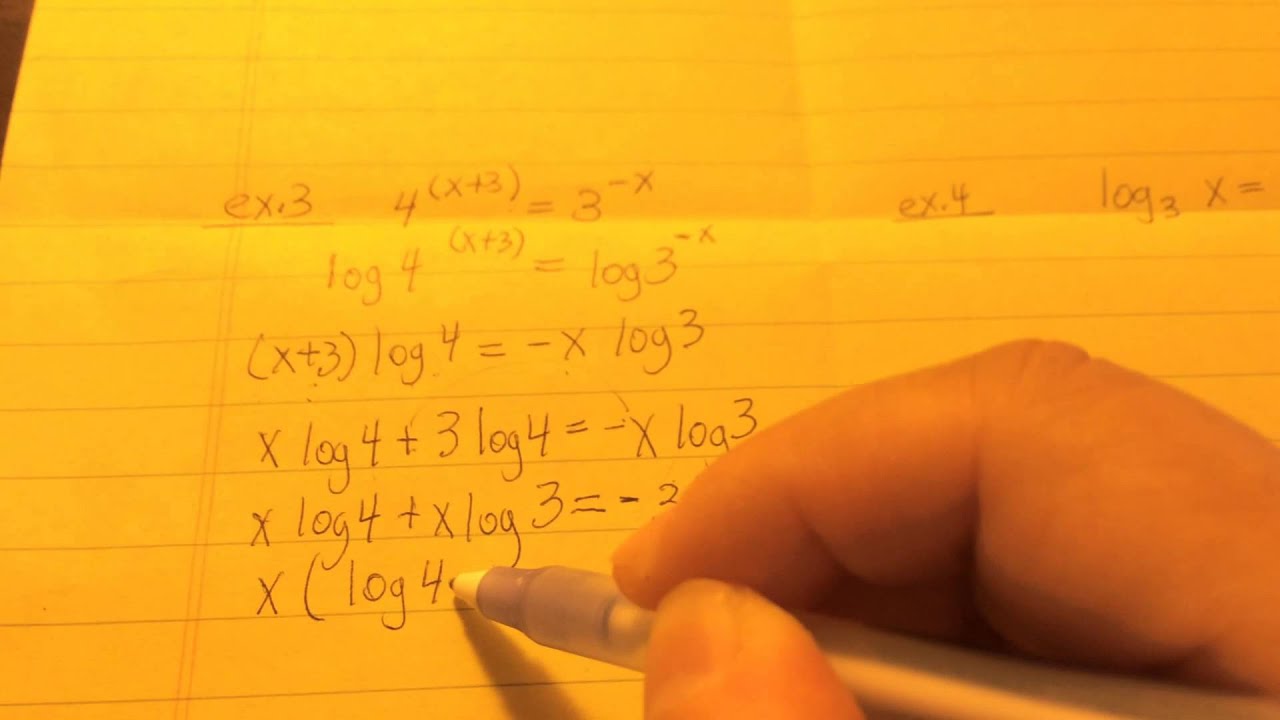 ex.3 4^(x+3) = 3^-x
log 4^(x+3) = log 3^-x
(x+3) log 4 = -x log 3
x log 4 + 3 log 4 = -x log 3
x log 4 + x log 3 = -
x ( log 4
ex.4 log₃ x =